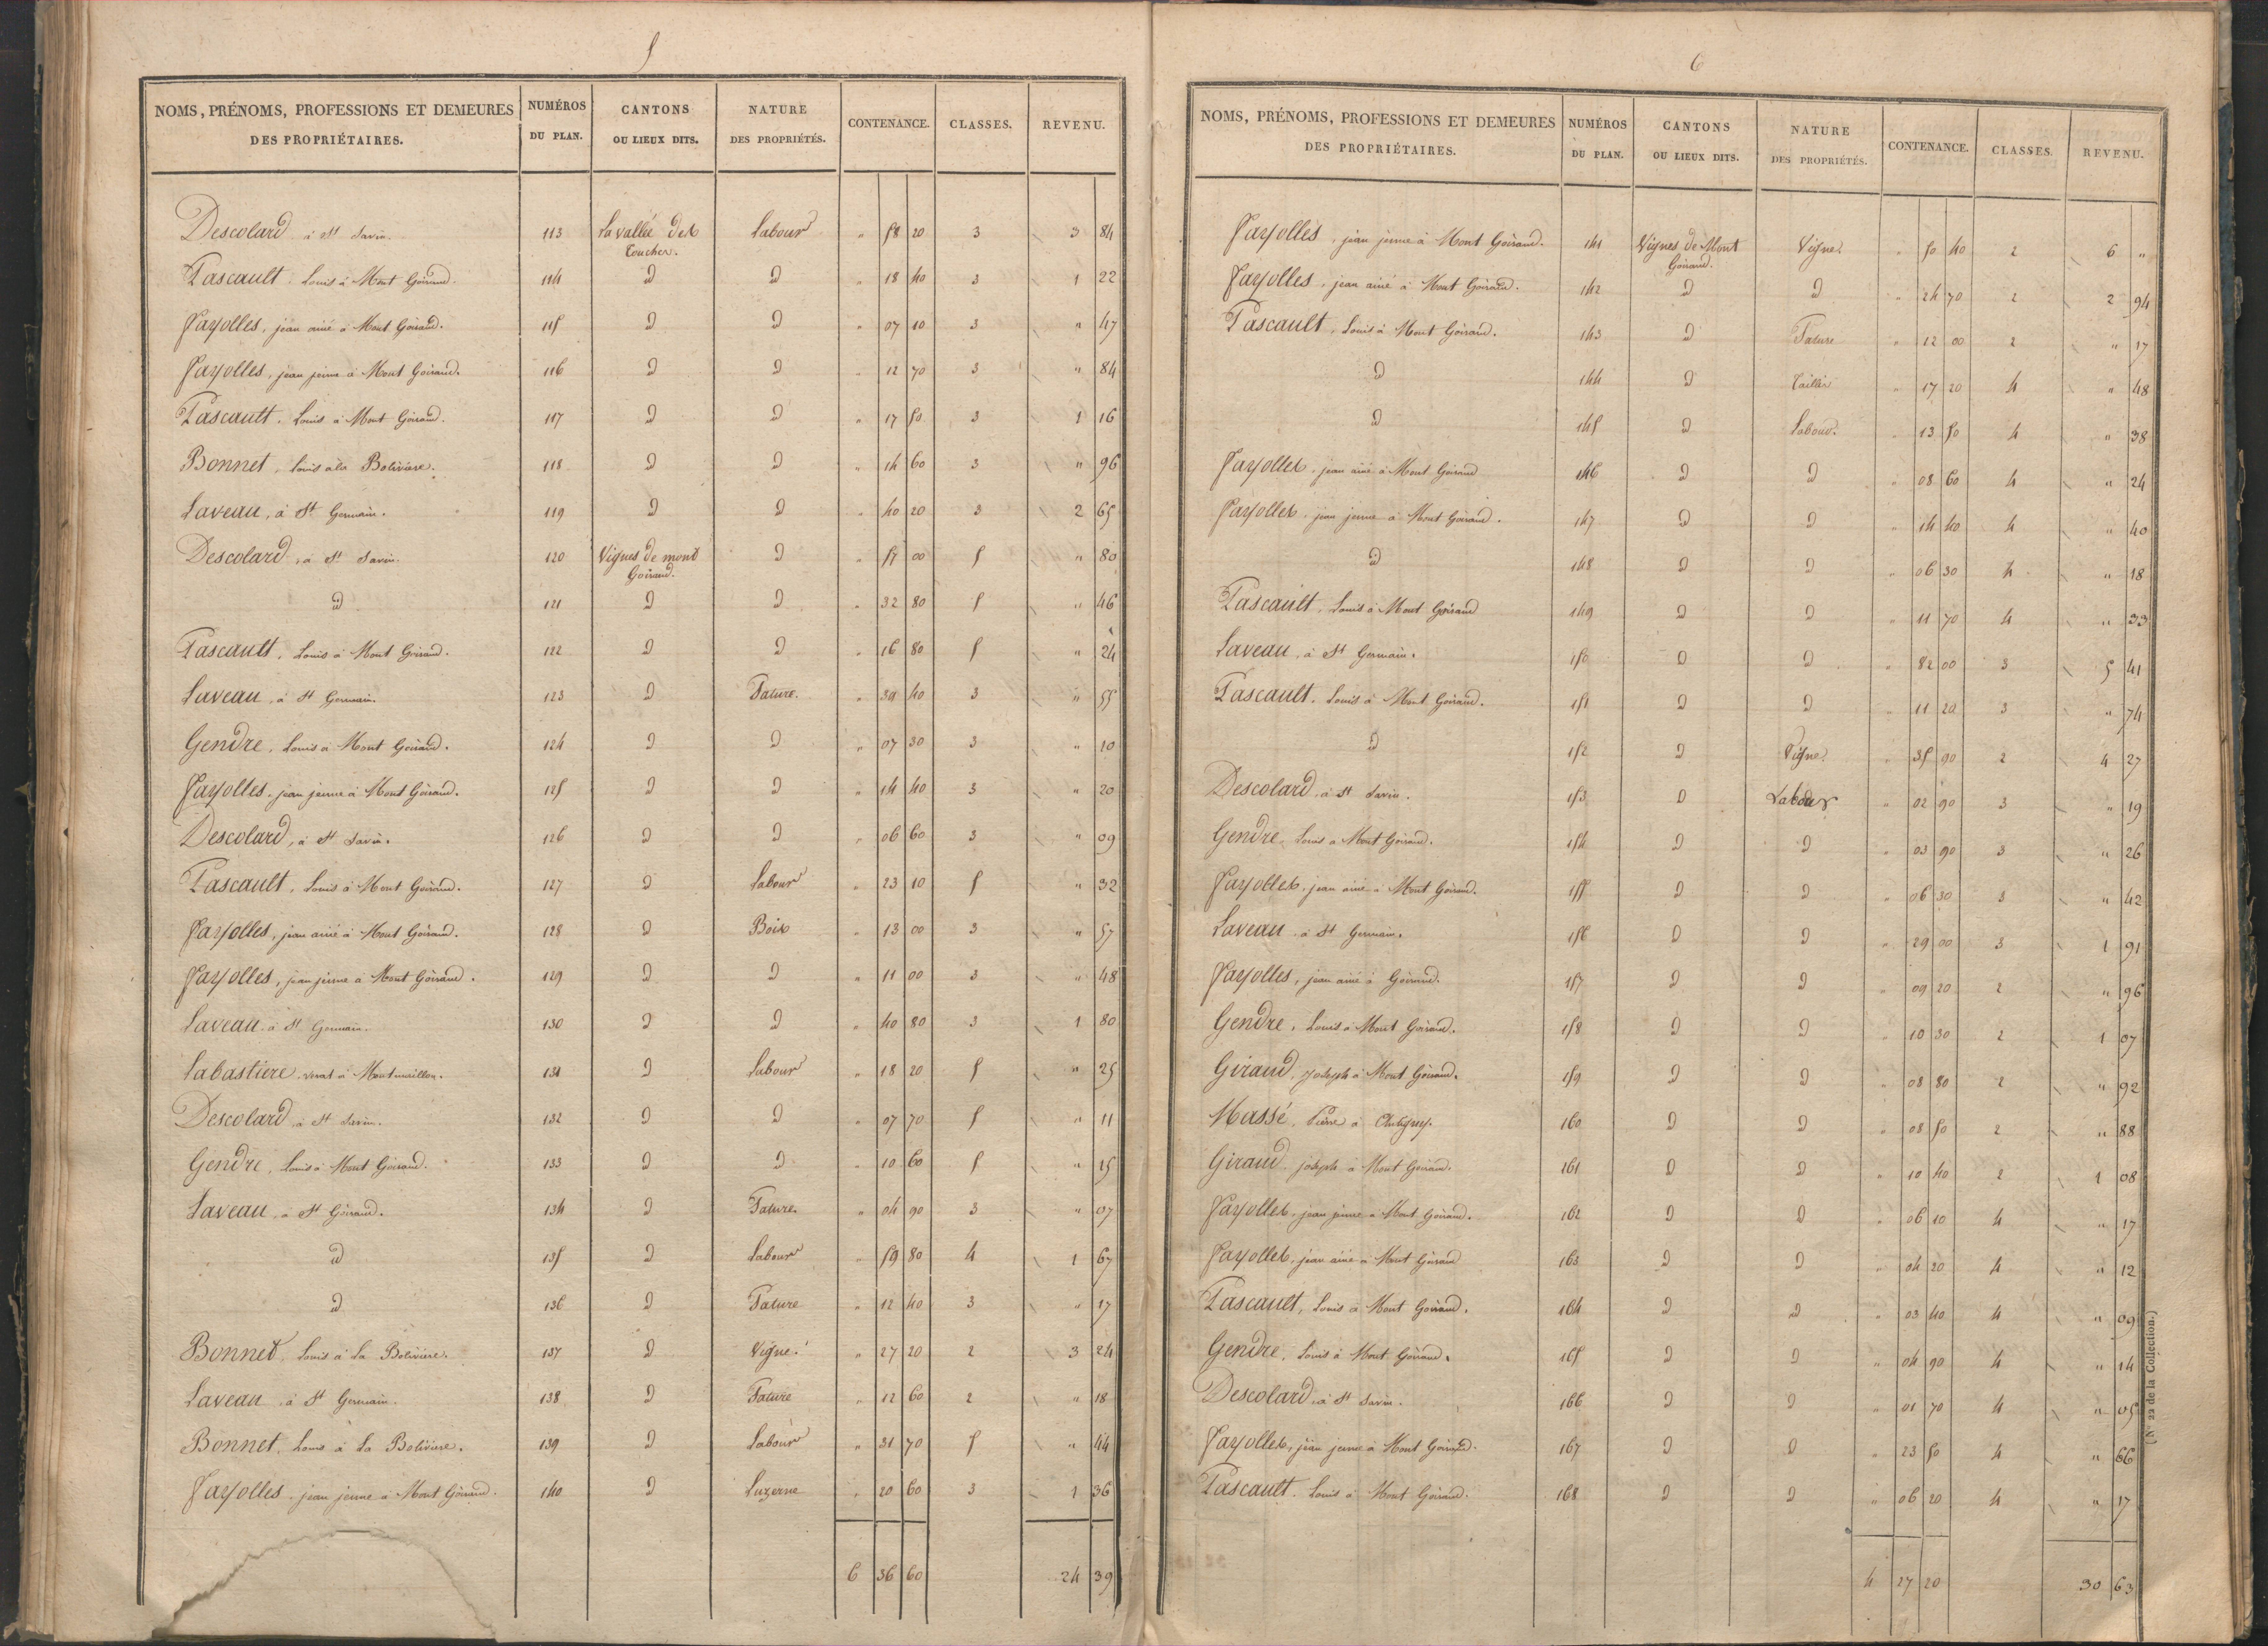 5
NOMS, PRÉNOMS, PROFESSIONS ET DEMEURES DES PROPRIÉTAIRES. NUMÉROS DU PLAN. CANTONS OU LIEUX DITS. NATURE DES PROPRIÉTÉS. CONTENANCE. CLASSES. REVENU.
Descolard à St Savin. 113 La vallée des Toucher. Labour " 58 20 3 3 84
Pascault Louis à Mont Goirand. 114 D D " 18 40 3 1 22
Fayolles, jean ainé à Mont Goirand. 115 D D " 07 10 3 " 47
Fayolles, jean jeune à Mont Goirand. 116 D D " 12 70 3 " 84
Pascault, Louis à Mont Goirand. 117 D D " 17 50 3 1 16
Bonnet, Louis à la Boliviere. 118 D D " 14 60 3 " 96
Laveau, à St Germain. 119 D D " 40 20 3 2 65
Descolard, à St Savin. 120 Vignes de mont Goirand. D " 57 00 5 " 80
D 121 D D " 32 80 5 " 46
Pascault, Louis à Mont Goirand. 122 D D " 16 80 5 " 24
Laveau, à St Germain. 123 D Pature. " 39 40 3 " 55
Gendre, Louis à Mont Goirand. 124 D D " 07 30 3 " 10
Fayolles, jean jeune à Mont Goirand. 125 D D " 14 40 3 " 20
Descolard, à St Savin. 126 D D " 06 60 3 " 09
Pascault, Louis à Mont Goirand. 127 D Labour " 23 10 5 " 32
Fayolles, jean ainé à Mont Goirand. 128 D Bois " 13 00 3 " 57
Fayolles, jean jeune à Mont Goirand. 129 D D " 11 00 3 " 48
Laveau à St Germain. 130 D D " 40 80 3 1 80
Labastiere à Montmaillon. 131 D Labour " 18 20 5 " 25
Descolard, à St Savin. 132 D D " 07 70 5 " 11
Gendre, Louis à Mont Goirand. 133 D D " 10 60 5 " 15
Laveau, à St Goirand. 134 D Pature. " 04 90 3 " 07
D 135 D Labour " 59 80 4 1 67
D 136 D Pature " 12 40 3 " 17
Bonnet, Louis à La Boliviere. 137 D Vigne. " 27 20 2 3 24
Laveau, à St Germain. 138 D Pature " 12 60 2 " 18
Bonnet, Louis à La Boliviere. 139 D Labour " 31 70 5 " 44
Fayolles, jean jeune à Mont Goirand. 140 D Luzerne " 20 60 3 1 36
6 36 60 24 39
6
NOMS, PRÉNOMS, PROFESSIONS ET DEMEURES DES PROPRIÉTAIRES. NUMÉROS DU PLAN. CANTONS OU LIEUX DITS. NATURE DES PROPRIÉTÉS. CONTENANCE. CLASSES. REVENU.
Fayolles, jean jeune à Mont Goirand. 141 Vignes de Mont Goirand. Vigne. " 50 40 2 6 "
Fayolles, jean ainé à Mont Goirand. 142 D D " 24 70 2 2 94
Pascault, Louis à Mont Goirand. 143 D Pature " 12 00 2 " 17
D 144 D Taillis " 17 20 4 " 48
D 145 D Labour. " 13 50 4 " 38
Fayolles, jean ainé à Mont Goirand 146 D D " 08 60 4 " 24
Fayolles, jean jeune à Mont Goirand. 147 D D " 14 40 4 " 40
D 148 D D " 06 30 4 " 18
Pascault, Louis à Mont Goirand 149 D D " 11 70 4 " 33
Laveau, à St Germain. 150 D D " 82 00 3 5 41
Pascault, Louis à Mont Goirand. 151 D D " 11 20 3 " 74
D 152 D Vigne. " 35 90 2 4 27
Descolard, à St Savin. 153 D Labour " 02 90 3 " 19
Gendre, Louis à Mont Goirand. 154 D D " 03 90 3 " 26
Fayolles, jean ainé à Mont Goirand. 155 D D " 06 30 3 " 42
Laveau à St Germain. 156 D D " 29 00 3 1 91
Fayolles, jean ainé à Goirand. 157 D D " 09 20 2 " 96
Gendre, Louis à Mont Goirand. 158 D D " 10 30 2 1 07
Giraud, joseph à Mont Goirand. 159 D D " 08 80 2 " 92
Massé, Pierre à 160 D D " 08 50 2 " 88
Giraud joseph à Mont Goirand. 161 D D " 10 40 2 1 08
Fayolles, jean jeune à Mont Goirand. 162 D D " 06 10 4 " 17
Fayolles, jean ainé à Mont Goirand 163 D D " 04 20 4 " 12
Pascault, Louis à Mont Goirand. 164 D D " 03 40 4 " 09
Gendre, Louis à Mont Goirand. 165 D D " 04 90 4 " 14
Descolard à St Savin. 166 D D " 01 70 4 " 05
Fayolles, jean jeune à Mont Goirand. 167 D D " 23 50 4 " 66
Pascault, Louis à Mont Goirand. 168 D D " 06 20 4 " 17
4 27 20 30 63
(N° 22 de la Collection.)